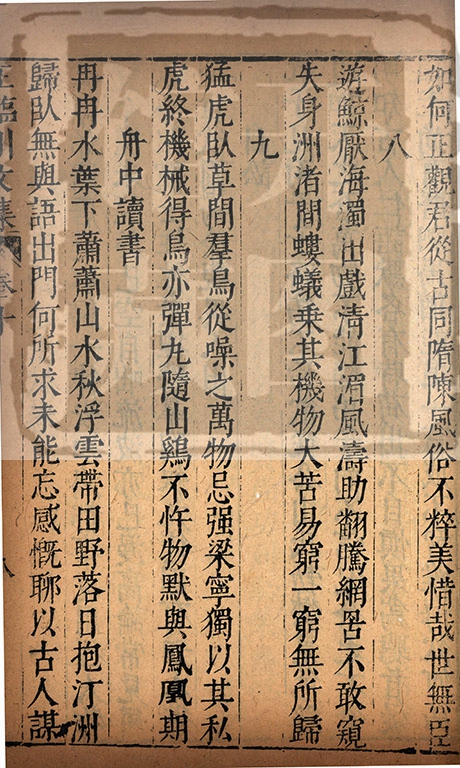 如何正觀君從古同隋陳風俗不粹美惜哉世無臣
八
遊鯨厭海濁出戲清江湄風濤助翻騰網罟不敢窺
失身洲渚間螻蟻乘其機物大苦易窮一窮無所歸
九
猛虎臥草間羣鳥從噪之萬物忌强梁寧獨以其私
虎終機械得鳥亦彈丸隨山鷄不忤物默與鳳凰期
舟中讀書
冉冉水葉下蕭蕭山水秋浮雲帶田野落日抱汀洲
歸臥無與語出門何所求未能忘感慨聊以古人謀
王臨川文集 卷十 八